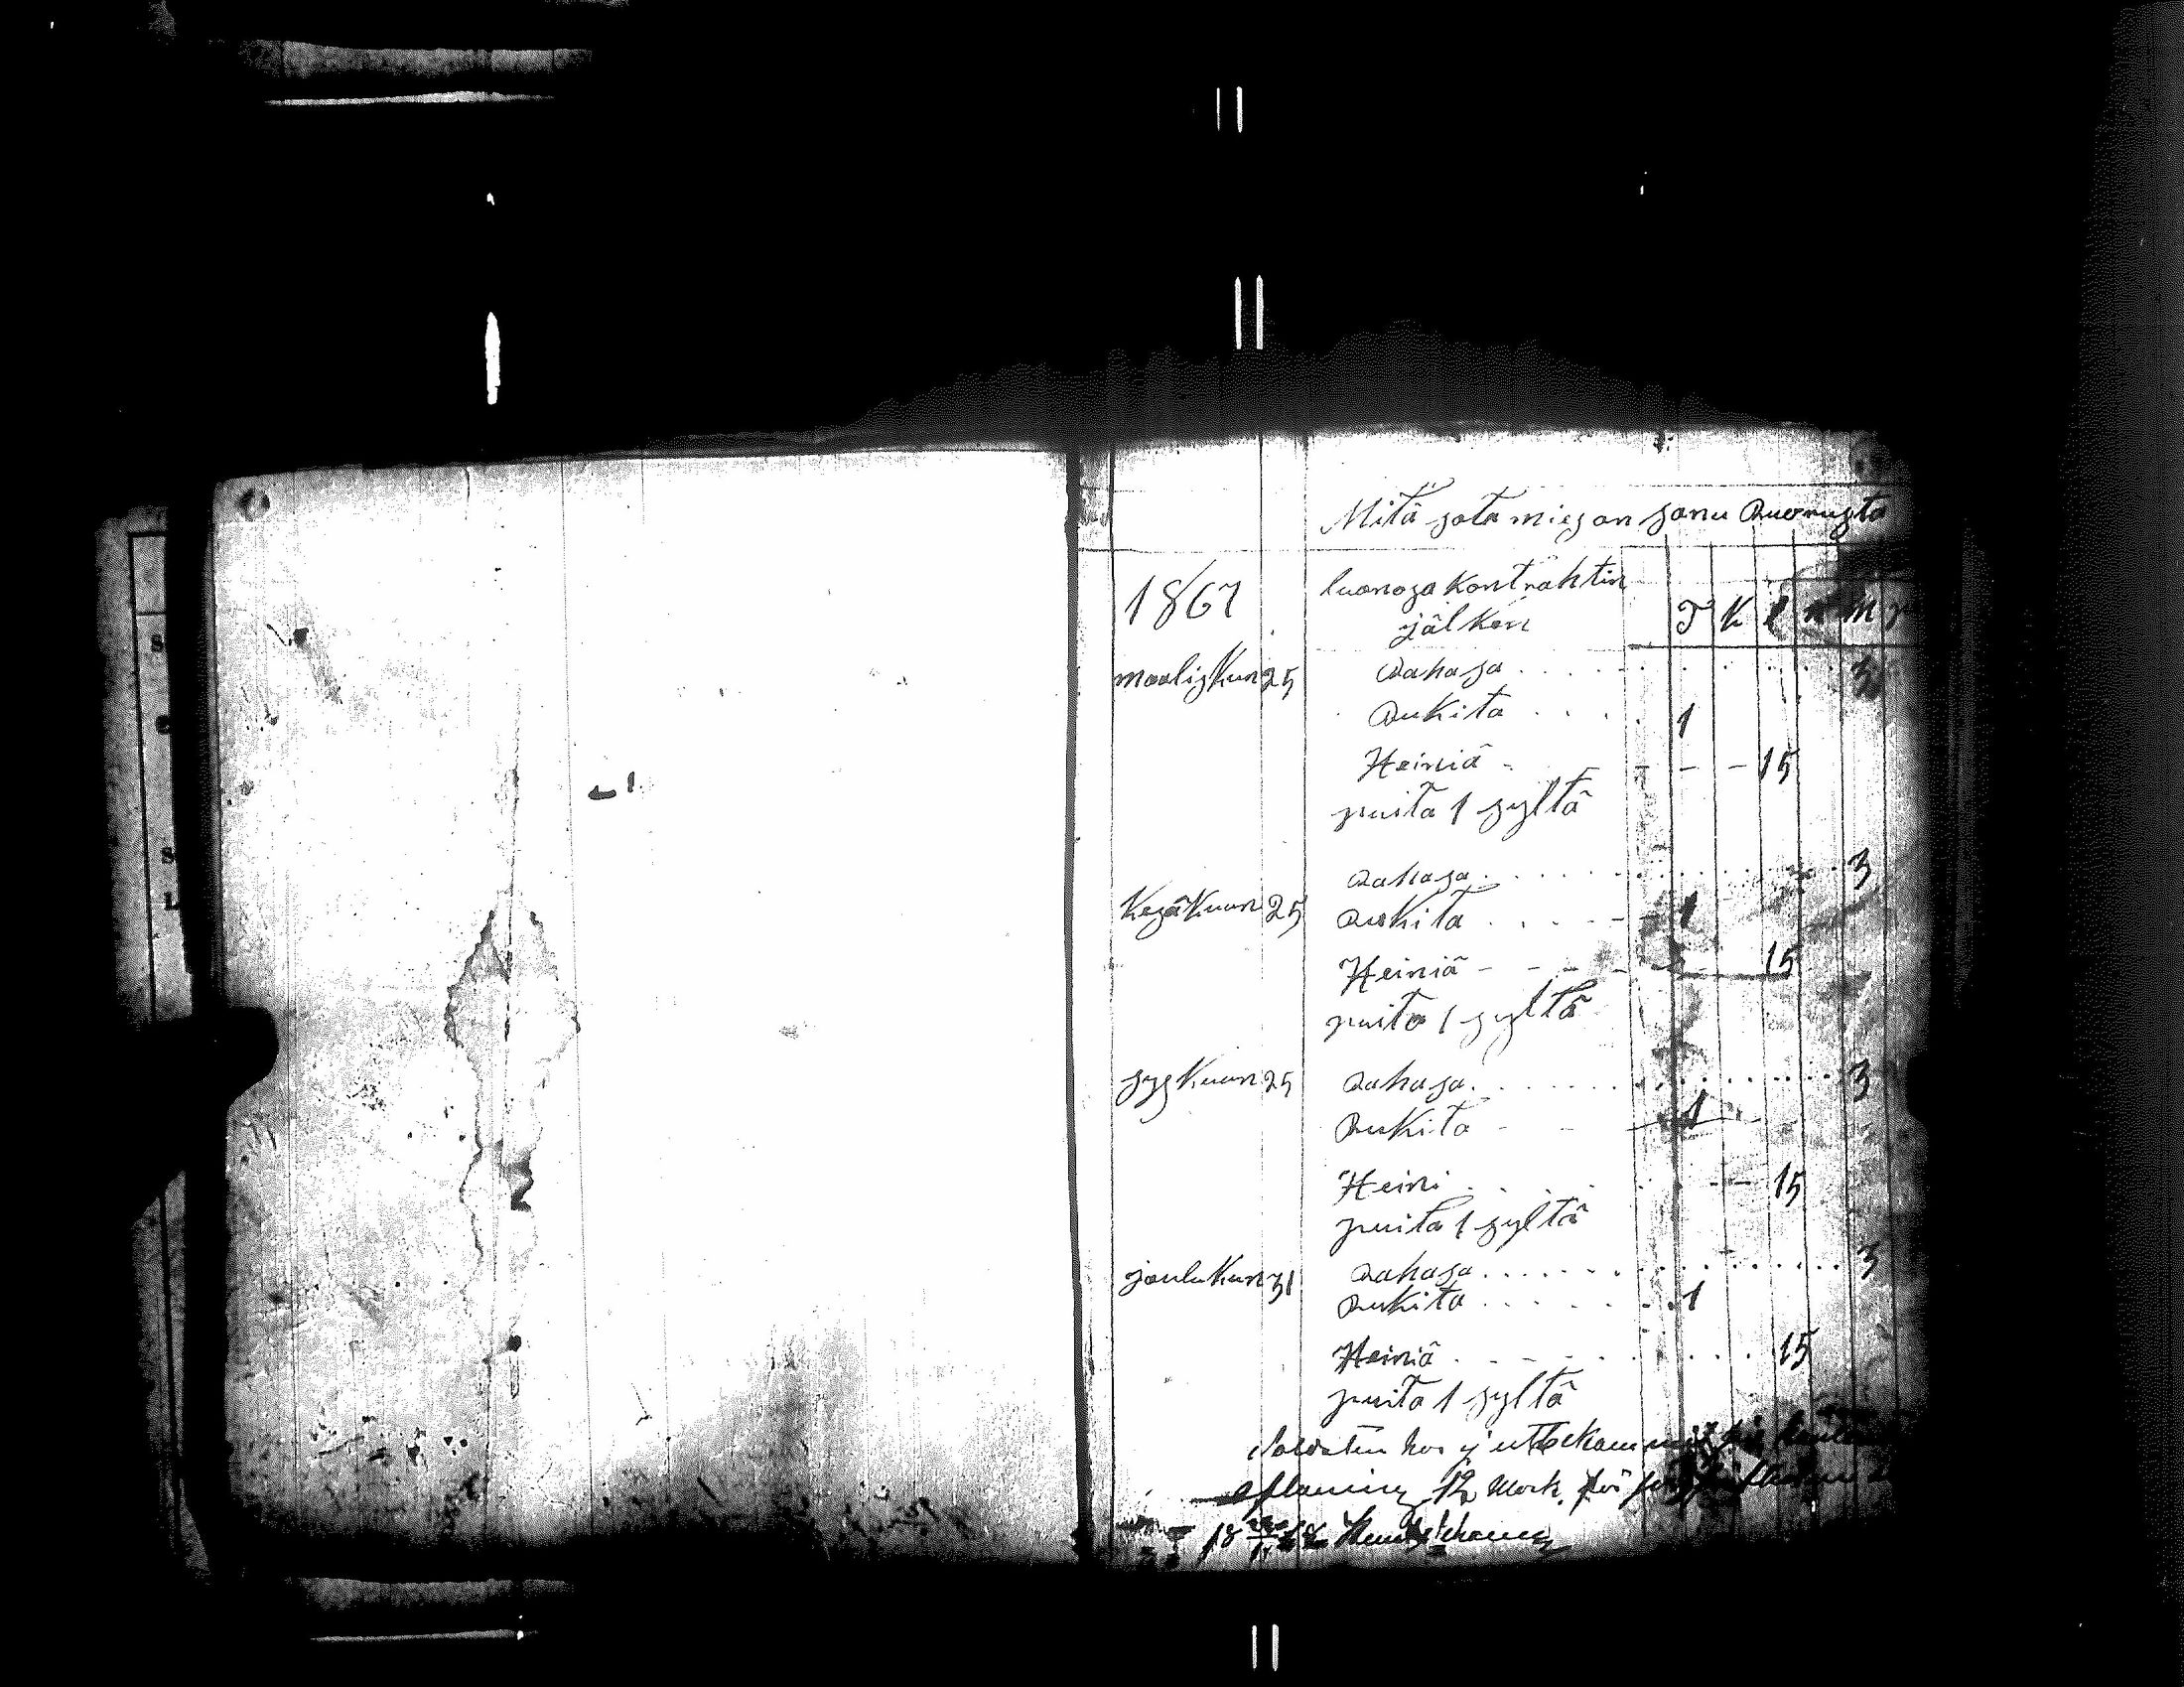 Mitä sota mies on sanu Ruorusta
1867 luonosa kontrahtin
jälken T K l
maalis Kun 25 Rahasa . . . . 3
Rukita . . . . 1
Heiniä - - - 15
puita 1 syltä
Rahasa . . . . 3
Kesä Kuun 25 Rukita . . . - 1
Heiniä - - - 15
puita 1 syltä
sys Kuun 25 Rahasa . . . . 3
Rukita - - 1
Heini . . . - 15
puita 1 syltä
joulu Kun 31 Rahasa . . . . 3
Rukita . . . . 1
Heiniä . - - . . . 15
puita 1 syltä
Soldaten har ej utbekommit
12 Mark för
18